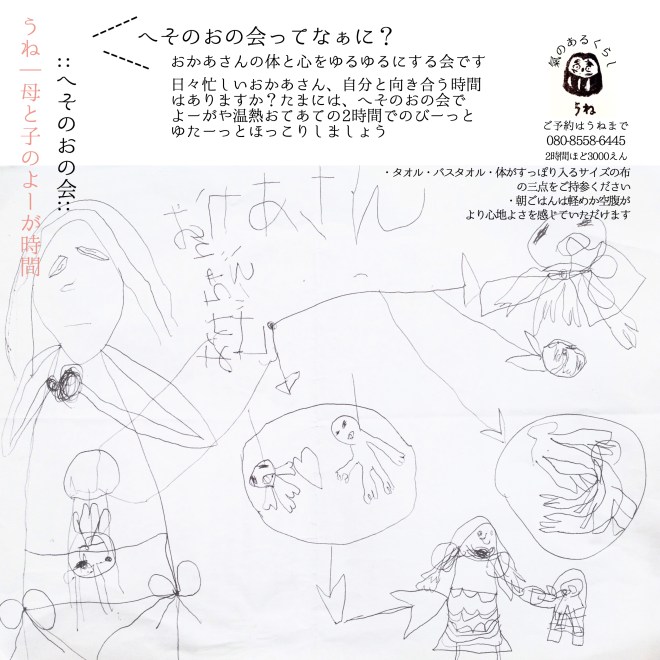 うね｜母と子のよーが時間
::へそのおの会::
へそのおの会ってなぁに？
おかあさんの体と心をゆるゆるにする会です
日々忙しいおかあさん、自分と向き合う時間
はありますか？たまには、へそのおの会で
よーがや温熱おてあての2時間でのびーっと
ゆたーっとほっこりしましょう
氣のあるくらし
うね
ご予約はうねまで
080-8558-6445
2時間ほど3000えん
・タオル・バスタオル・体がすっぽり入るサイズの布
の三点をご持参ください
・朝ごはんは軽めか空腹が
より心地よさを感じていただけます
おかあさん